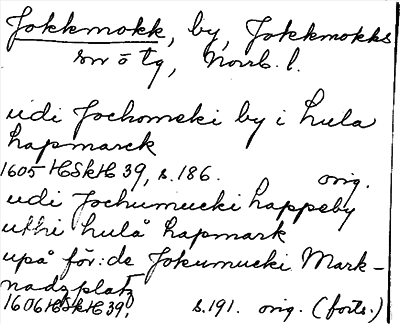 Jokkmokk, by, Jokkmokks
sn o tg, Norrb. l.
udi Jochomski by i hula
hapmarck
1605 HSkH 39, s. 186. orig.
udi Jochumucki happeby
uthi hulå hapmark
upå för:de Jokumucki Mark-
nadzplatz
1606 HSkH 39, s. 191. orig. (forts.)